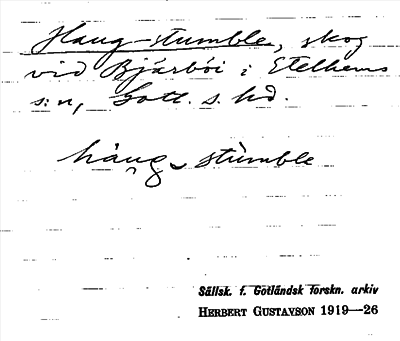 Haug-stumble, skog
vid Bjärbói i Etelhems
s:n, Gotl. s. hd.
håug-stùmble
Sällsk. f. Götländsk forskn. arkiv
HERBERT GUSTAVSON 1919—26